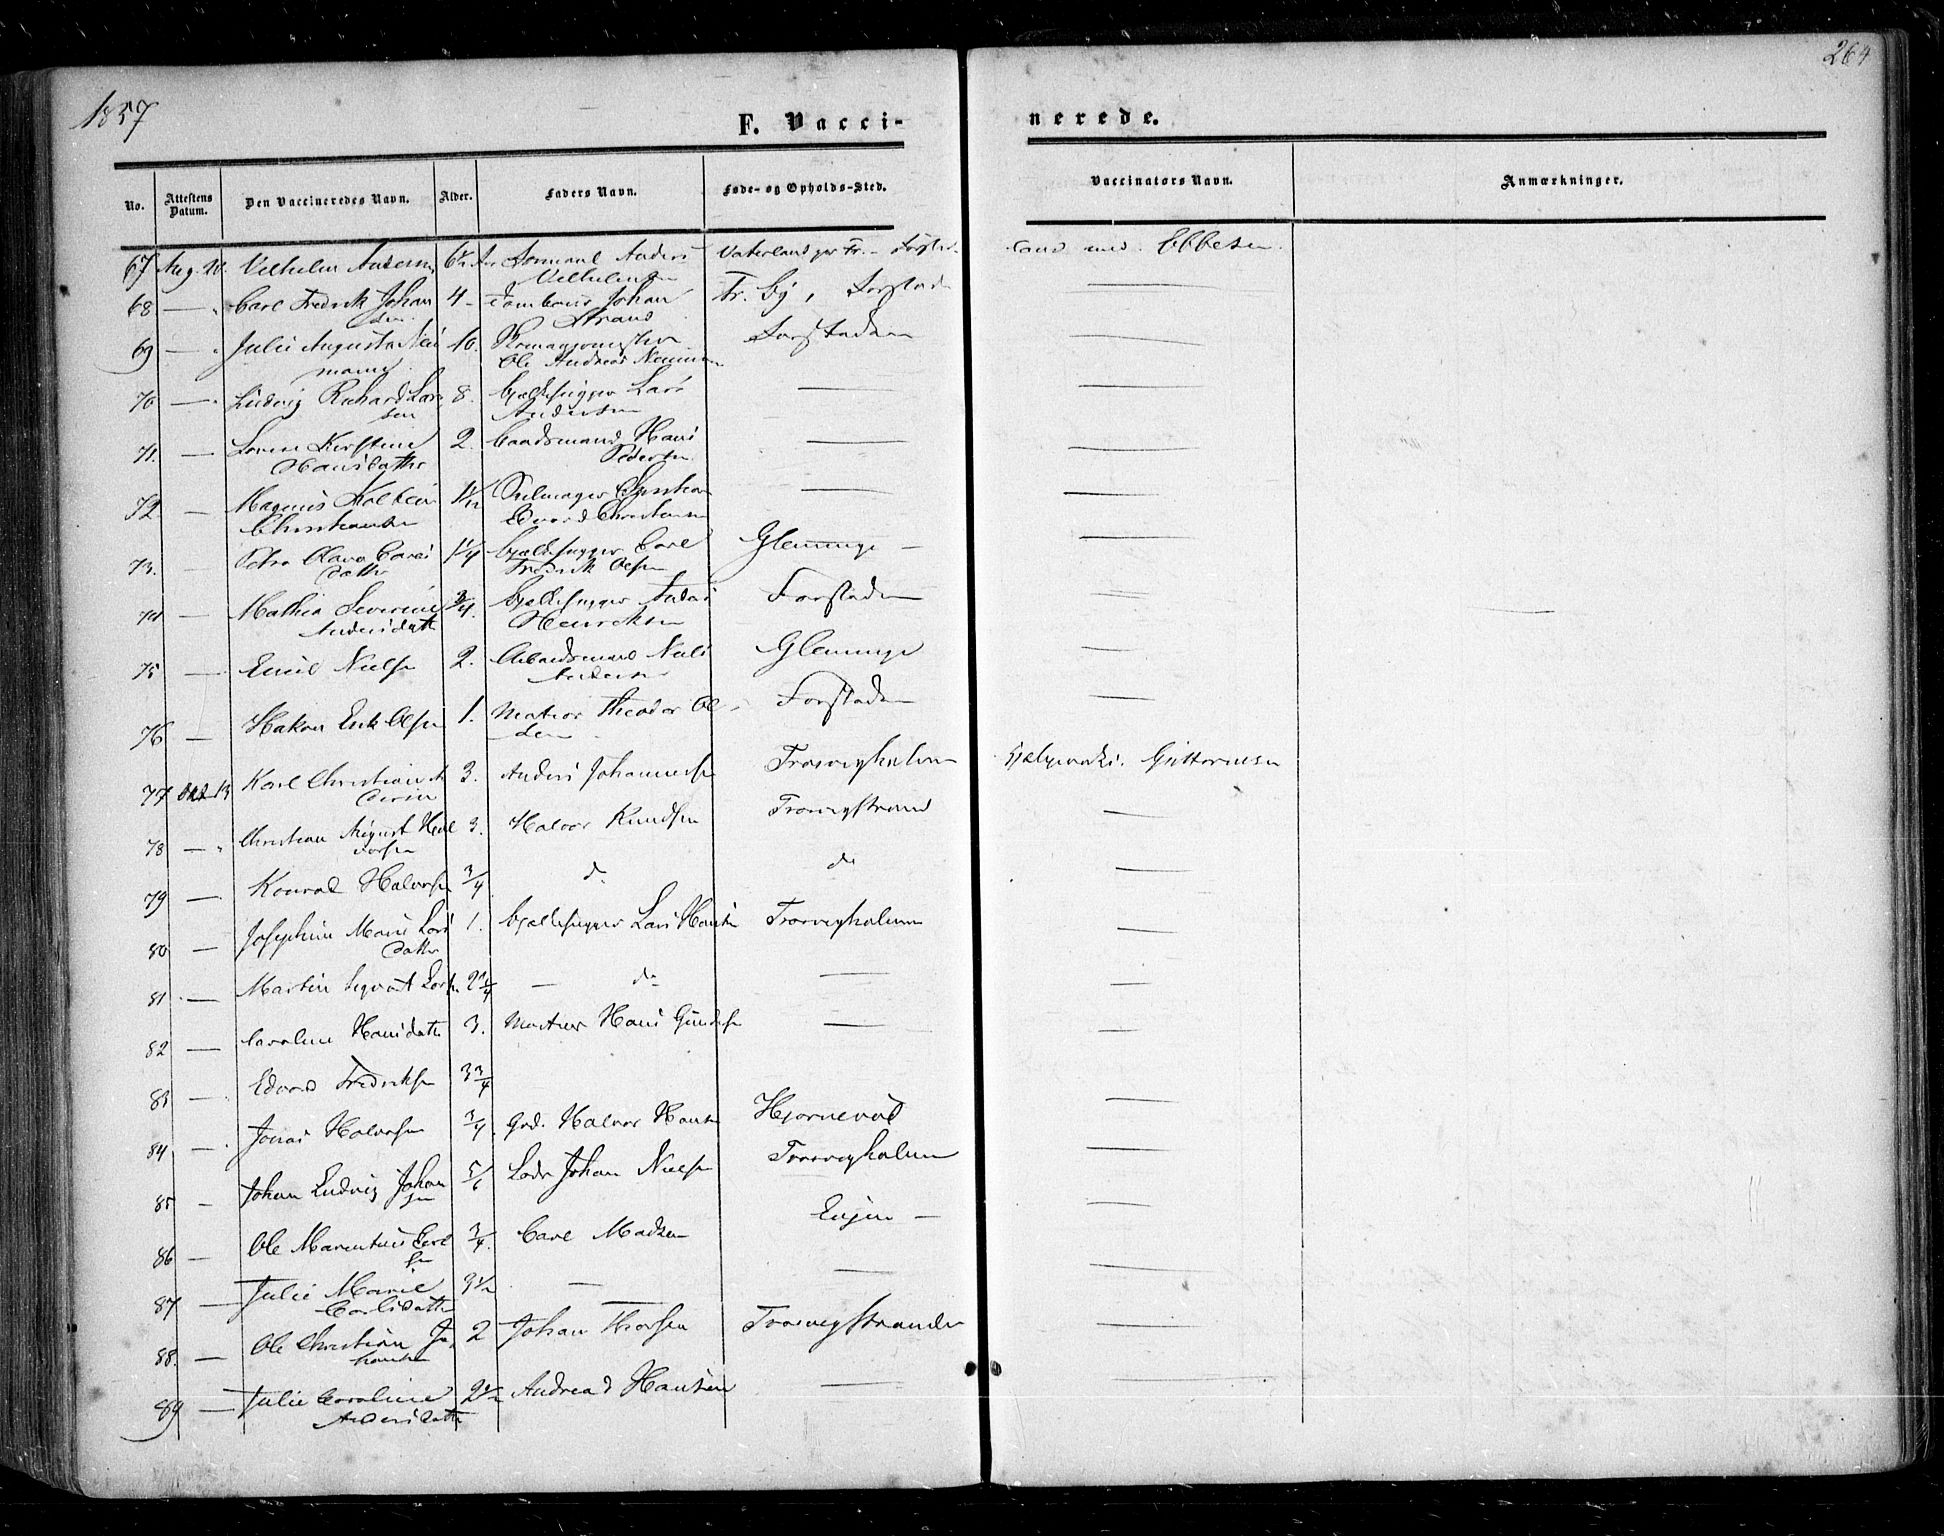 264
1857
F. Vacci-
nerede.
No.
Attestens Datum.
Den Vaccineredes Navn.
Alder.
Faders Navn.
Føde- og Opholds-Sted.
Vaccinators Navn.
Anmærkninger.
67 Aug. Vilhelm Anders 6½ Formand Anders Vaterland Fr. cand med. Ebbesen
Vilhelmsen
68 — Carl Fredrik Johan 4 Johan Fr. By, Forstad —
sen Strand
69 — Julie Augusta Neu 10. Ole Andreas Neumann Forstaden —
mann
70 — Ludvig Richard Lar 8. Bjelkehugger Lars — —
sen Andersen
71. — Kirstine 2. Baadsmand Hans — —
Hansdatter Pedersen
72. — Magnus Kolbein 1½ Christian — —
Christiansen Edvard Christiansen
73. — Petra Olava Carls 1¼ Bjelkehugger Carl Glemminge — —
datter Fredrik Olsen
74 — Mathea Severine ¾. Bjelkehugger Anders Forstaden — —
Andersdatter Henriksen
75 — Emil Nielsen 2. Arbeidsmand Niels Glemminge —
Andersen
76 — Hakon Erik Olsen 1. Matros Theodor Ol Forstaden —
sen
77 Oct 13 Karl Christian A 3. Anders Johannesen Trosvigholmen Hjelpevacc. Guttormsen
dersen
78 — Christian August Hal 3. Halvor Knudsen Trosvigstrand —
vorsen
79 — Konrad Halvorsen ¾ do do —
80 — Josephine Marie Lars 1. Bjelkehugger Lars Hansen Trosvigholmen —
datter
81 — Martin Sigvart Larsen 2¼ — do — —
82 — Caroline Hansdatter 3. Matros Hans Gundersen — —
83 — Edvard Fredriksen 3¾ —
84 — Jonas Halvorsen ¾. Grd. Halvor Hansen Hjørnerød —
85 — Johan Ludvig Johan 5/6 Johan Nielsen Trosvigholmen —
sen
86 — Ole Marentius Carl ¾. Carl Madsen Engen — —
sen
87 — Julie Marie 3½ — — —
Carlsdatter
88. — Ole Christian Jo 2 Johan Thorsen Trosvigstranden —
hansen
89 — Julie Caroline 2½ Andreas Hansen — —
Andersdatter